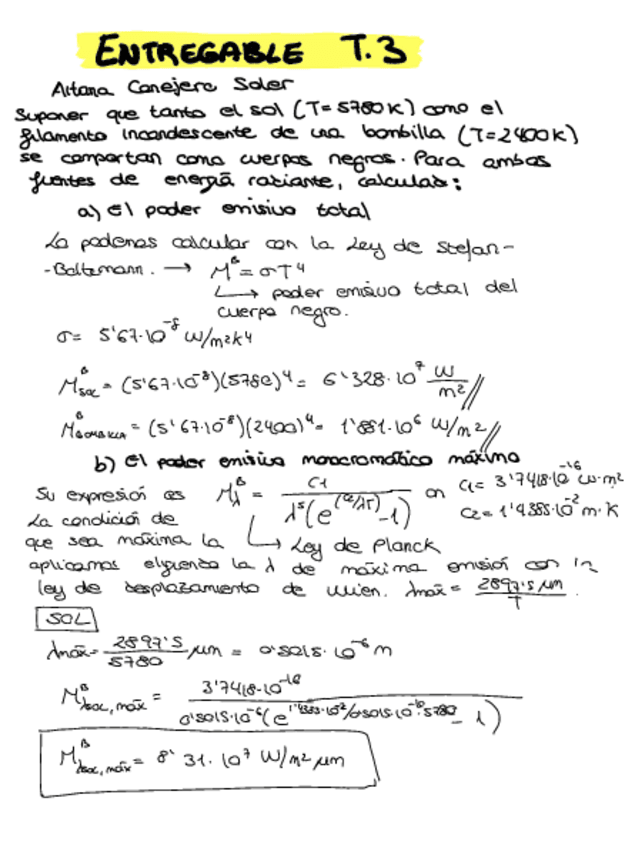 ENTREGABLE T.3
Aitana Canejero Soler
Suponer que tanto el sol (T=5780K) como el
filamento incandescente de una bombilla (T=2400K)
se comportan como cuerpos negros. Para ambas
fuentes de energía radiante, calcular:
a) El poder emisivo total
La podemos calcular con la Ley de Stefan-
-Boltzmann. → Mᴮ = σT⁴
↳ poder emisivo total del
cuerpo negro.
σ = 5'67·10⁻⁸ W/m²K⁴
Mᴮsol = (5'67·10⁻⁸)(5780)⁴ = 6'328·10⁷ W/m²//
Mᴮbombilla = (5'67·10⁻⁸)(2400)⁴ = 1'881·10⁶ W/m²//
b) El poder emisivo monocromático máximo
Su expresión es Mᴮλ = C1/λ⁵(e^(C2/λT) - 1) en C1 = 3'7418·10⁻¹⁶ W·m²
La condición de C2 = 1'4385·10⁻² m·K
que sea máxima la ↳ Ley de Planck
aplicamos eligiendo la λ de máxima emisión con la
ley de desplazamiento de Wien. λmáx = 2897'5 μm/T.
SOL
λmáx = 2897'5/5780 μm = 0'5015·10⁻⁶ m
Mᴮλsol, máx = 3'7418·10⁻¹⁶/0'5015·10⁻⁶(e^(1'4385·10⁻²/0'5015·10⁻⁶·5780) - 1)
Mᴮλsol, máx = 8'31·10⁷ W/m² μm